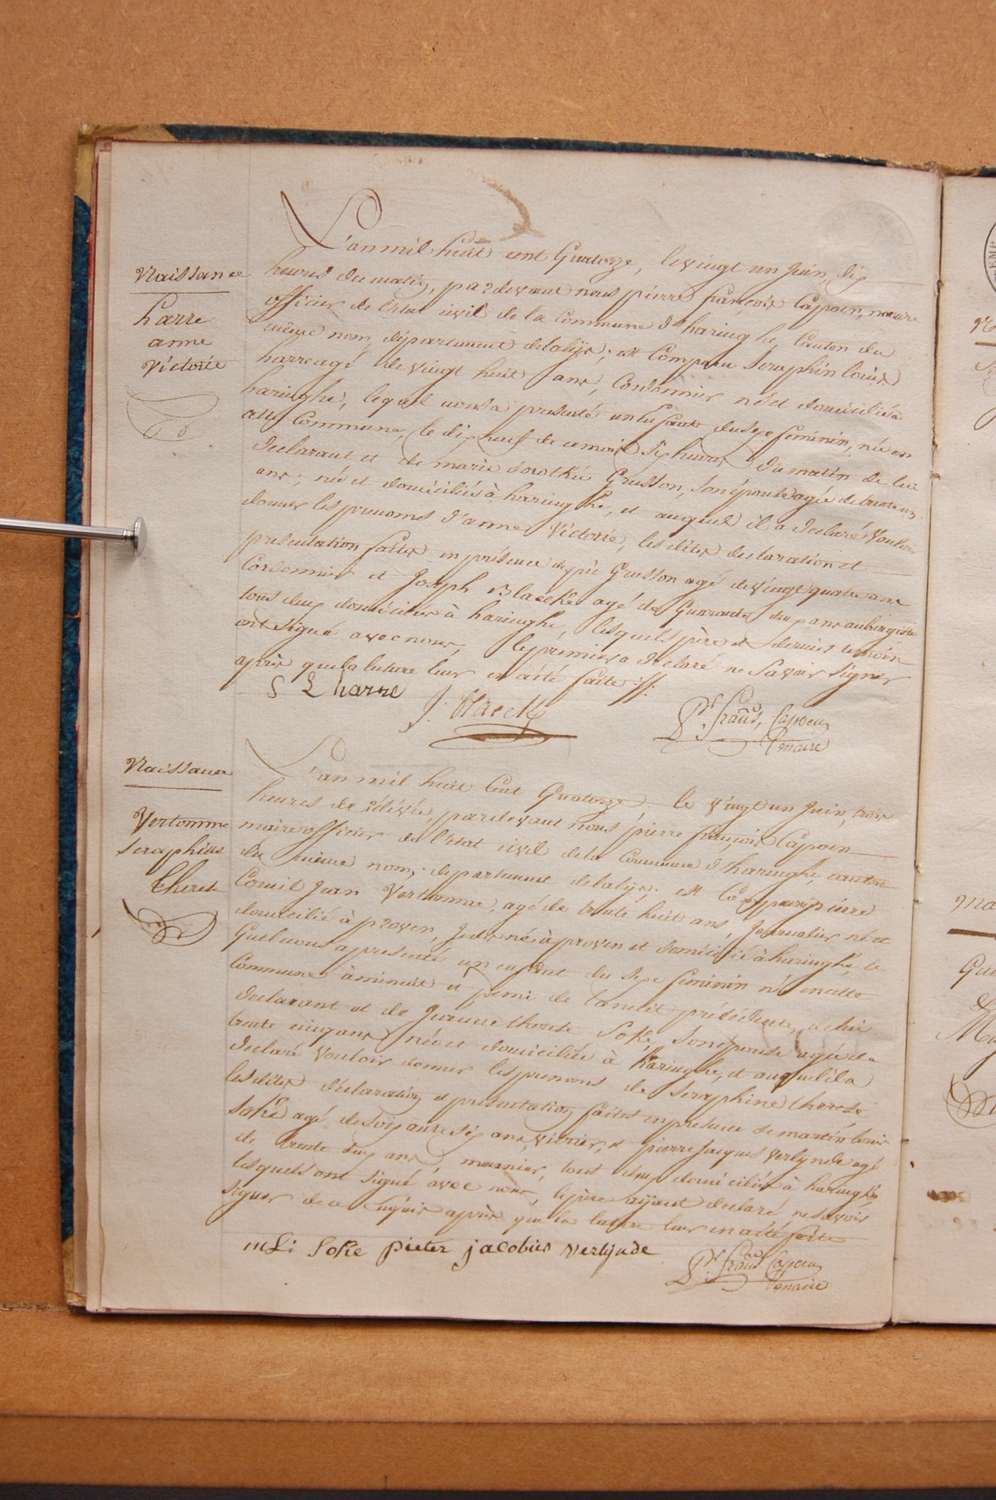 Naissance
harre
anne
victorie
L'an mil huit cent Quatorze, le vingt un juin, dix
heures du matin, par devant nous pierre françois Capoen, maire
officier de l'état civil de la Commune d'haringhe, Canton du
même nom, département de la lys; est Comparu Seraphin louis
harre agé de vingt huit ans, Cordonnier né et domicilié à
haringhe, lequel nous a presenté un enfant du sexe feminin, née en
cette Commune, le dix neuf de ce mois à six heures du matin de lui
declarant et de marie Grusson, son épouse agée de
ans, né et domiciliés à haringhe, et auquel il a declaré vouloir
donner les prenoms d'anne Victorie, les dites declaration et
presentation faites en presence de Grusson agé de vingt quatre ans
Cordonnier et Joseph Blaecke agé de Quarante ans aubergiste
tous deux domiciliés à haringhe, lesquels père et dernier temoin
ont signé avec nous, le premier a declaré ne savoir signer
après que lecture leur en a été faite.
S L harre
J: Blaecke
Pr. franç. Capoen
maire
Naissance
Vertomme
Seraphine
therese
L'an mil huit Cent Quatorze le vingt un juin, trois
heures de relevée, pardevant nous pierre françois Capoen
maire officier de l'état civil de la Commune d'haringhe, canton
du même nom, departement de la lys; est Comparu pierre
Cornil Jean Vertomme, agé de trente huit ans, Journalier né et
domicilié à proven, né à proven et domicilié à haringhe, le
Quel nous a presenté un enfant du sexe feminin né en cette
Commune à minuit et demi de la nuit précédente, de lui
declarant et de Jeanne therese Sohie, son epouse agée de
trente cinq ans, née et domiciliée à haringhe, et auquel il a
declaré vouloir donner les prenoms de Seraphine therese
les dites declaration et presentation faites en presence de martin louis
Sohie agé de soixante six ans, et pierre Jacques verlynde agé
de trente ans, meunier, tous deux domiciliés à haringhe,
lesquels ont signé avec nous, le père ayant declaré ne savoir
signer de ce après que la lecture leur en a été faite
m L: Sohie pieter jacobus verlynde
Pr. franç. Capoen
maire